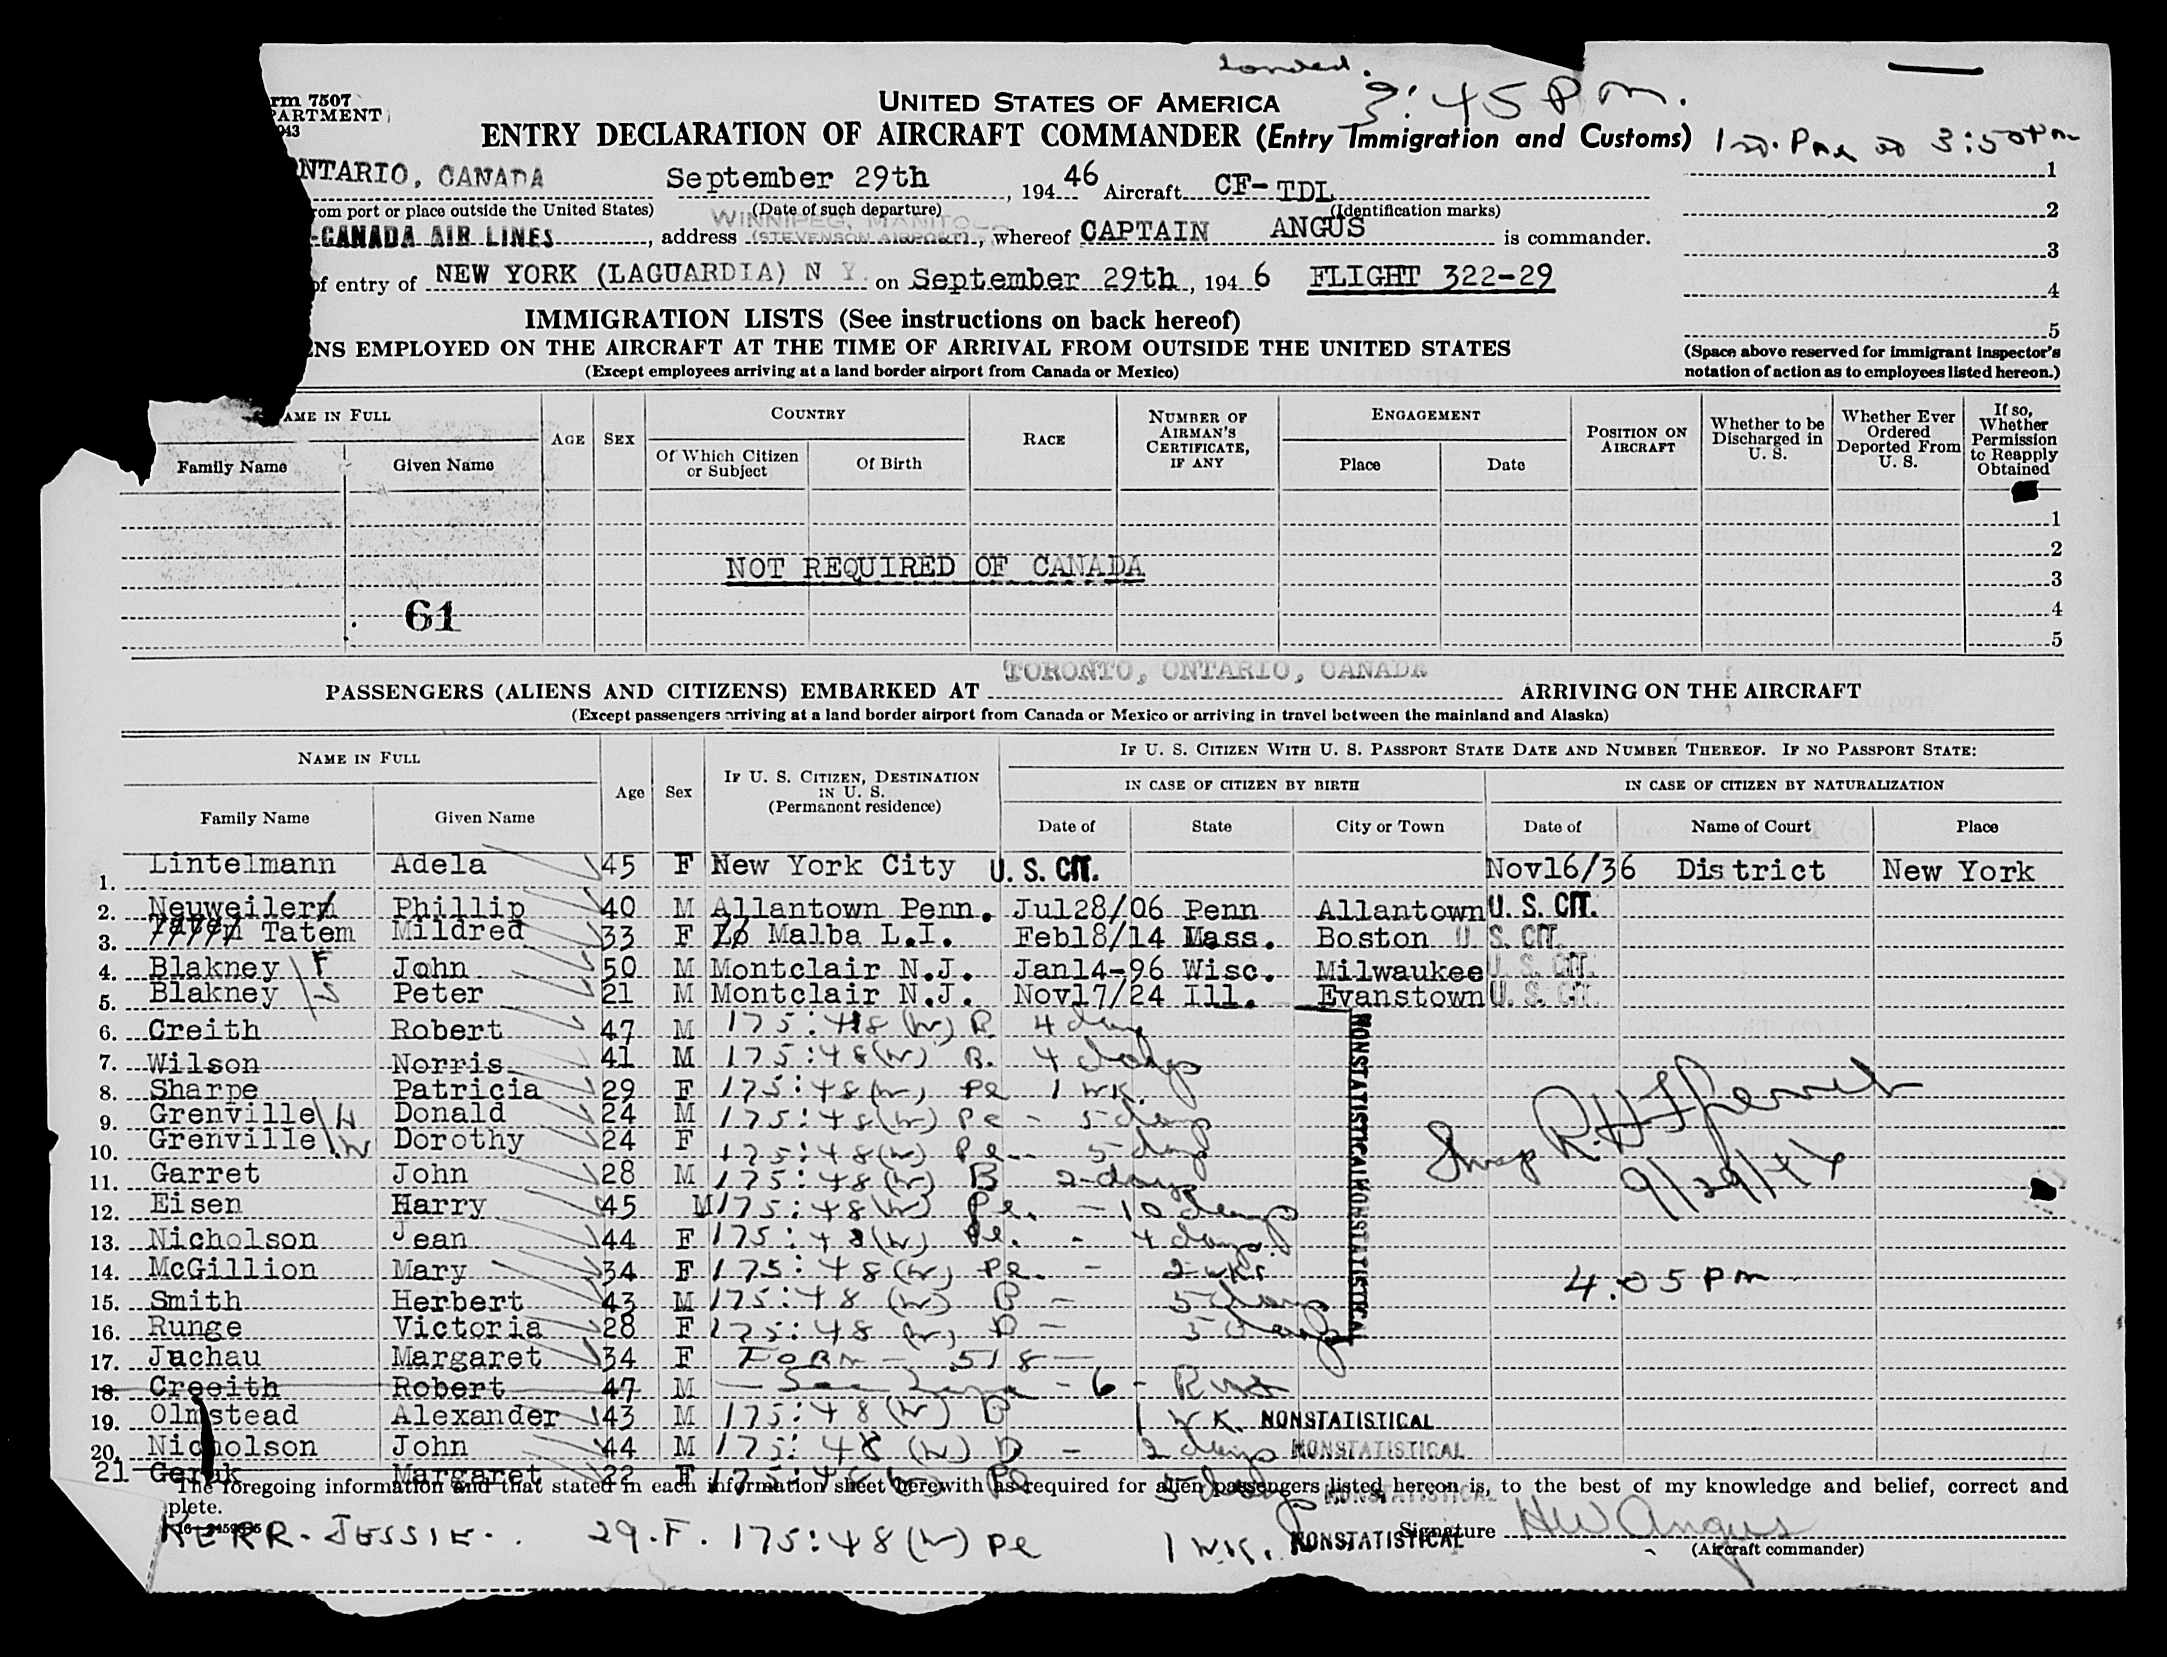 Landed.
3:45 P m.
rm 7507
PARTMENT
943
UNITED STATES OF AMERICA
ENTRY DECLARATION OF AIRCRAFT COMMANDER (Entry Immigration and Customs)
3:50 Pm
NTARIO, CANADA September 29th, 1946 Aircraft CF-TDL
rom port or place outside the United States) (Date of such departure) (Identification marks)
WINNIPEG, MANITO
-CANADA AIR LINES, address (STEVENSON AIRPORT), whereof CAPTAIN ANGUS is commander.
of entry of NEW YORK (LAGUARDIA) N Y. on September 29th, 1946 FLIGHT 322-29
1
2
3
4
5
(Space above reserved for immigrant inspector's notation of action as to employees listed hereon.)
IMMIGRATION LISTS (See instructions on back hereof)
ENS EMPLOYED ON THE AIRCRAFT AT THE TIME OF ARRIVAL FROM OUTSIDE THE UNITED STATES
(Except employees arriving at a land border airport from Canada or Mexico)
AME IN FULL
Family Name Given Name
AGE SEX
COUNTRY
Of Which Citizen or Subject Of Birth
RACE
NUMBER OF AIRMAN'S CERTIFICATE, IF ANY
ENGAGEMENT
Place Date
POSITION ON AIRCRAFT
Whether to be Discharged in U. S.
Whether Ever Ordered Deported From U. S.
If so, Whether Permission to Reapply Obtained
1
2
NOT REQUIRED OF CANADA 3
61 4
5
TORONTO, ONTARIO, CANADA
PASSENGERS (ALIENS AND CITIZENS) EMBARKED AT ARRIVING ON THE AIRCRAFT
(Except passengers arriving at a land border airport from Canada or Mexico or arriving in travel between the mainland and Alaska)
NAME IN FULL
Family Name Given Name
Age Sex
IF U. S. CITIZEN, DESTINATION IN U. S. (Permanent residence)
IF U. S. CITIZEN WITH U. S. PASSPORT STATE DATE AND NUMBER THEREOF. IF NO PASSPORT STATE:
IN CASE OF CITIZEN BY BIRTH IN CASE OF CITIZEN BY NATURALIZATION
Date of State City or Town Date of Name of Court Place
1. Lintelmann Adela 45 F New York City U. S. CIT. Nov16/36 District New York
2. Neuweiler Phillip 40 M Allantown Penn. Jul28/06 Penn Allantown U. S. CIT.
3. Tatem Mildred 33 F Malba L.I. Feb18/14 Mass. Boston U. S. CIT.
4. Blakney F John 50 M Montclair N.J. Jan14-96 Wisc. Milwaukee U. S. CIT.
5. Blakney S Peter 21 M Montclair N.J. Nov17/24 Ill. Evanstown U. S. CIT.
6. Creith Robert 47 M 175:48 (w) B 4 days
7. Wilson Norris 41 M 175:48(w) B. 4 days
8. Sharpe Patricia 29 F 175:48(w) Pe 1 wk.
9. Grenville H Donald 24 M 175:48(w) Pe - 5 days
10. Grenville W Dorothy 24 F 175:48(w) Pe - 5 days
11. Garret John 28 M 175:48(w) B 2 days
12. Eisen Harry 45 M 175:48(w) Pe. - 10 days
13. Nicholson Jean 44 F 175:48(w) Pe. - 4 days.
14. McGillion Mary 34 F 175:48(w) Pe. - 2 wks
15. Smith Herbert 43 M 175:48 (w) B - 5 days
16. Runge Victoria 28 F 175:48 (w) B - 5 days
17. Juchau Margaret 34 F FORM - 518 -
18. Creeith Robert 47 M - See Line - 6 -
19. Olmstead Alexander 43 M 175:48 (w) B 1 WK. NONSTATISTICAL
20. Nicholson John 44 M 175:48 (w) B - 2 days NONSTATISTICAL
21 Margaret 22 F 175:48 (w) Pe 5 days NONSTATISTICAL
NONSTATISTICAL NONSTATISTICAL
9/29/46
4.05 Pm
The foregoing information and that stated in each information sheet herewith as required for alien passengers listed hereon is, to the best of my knowledge and belief, correct and
plete.
KERR - JESSIE. 29. F. 175:48 (w) Pe 1 WK. NONSTATISTICAL
Signature HW Angus
(Aircraft commander)